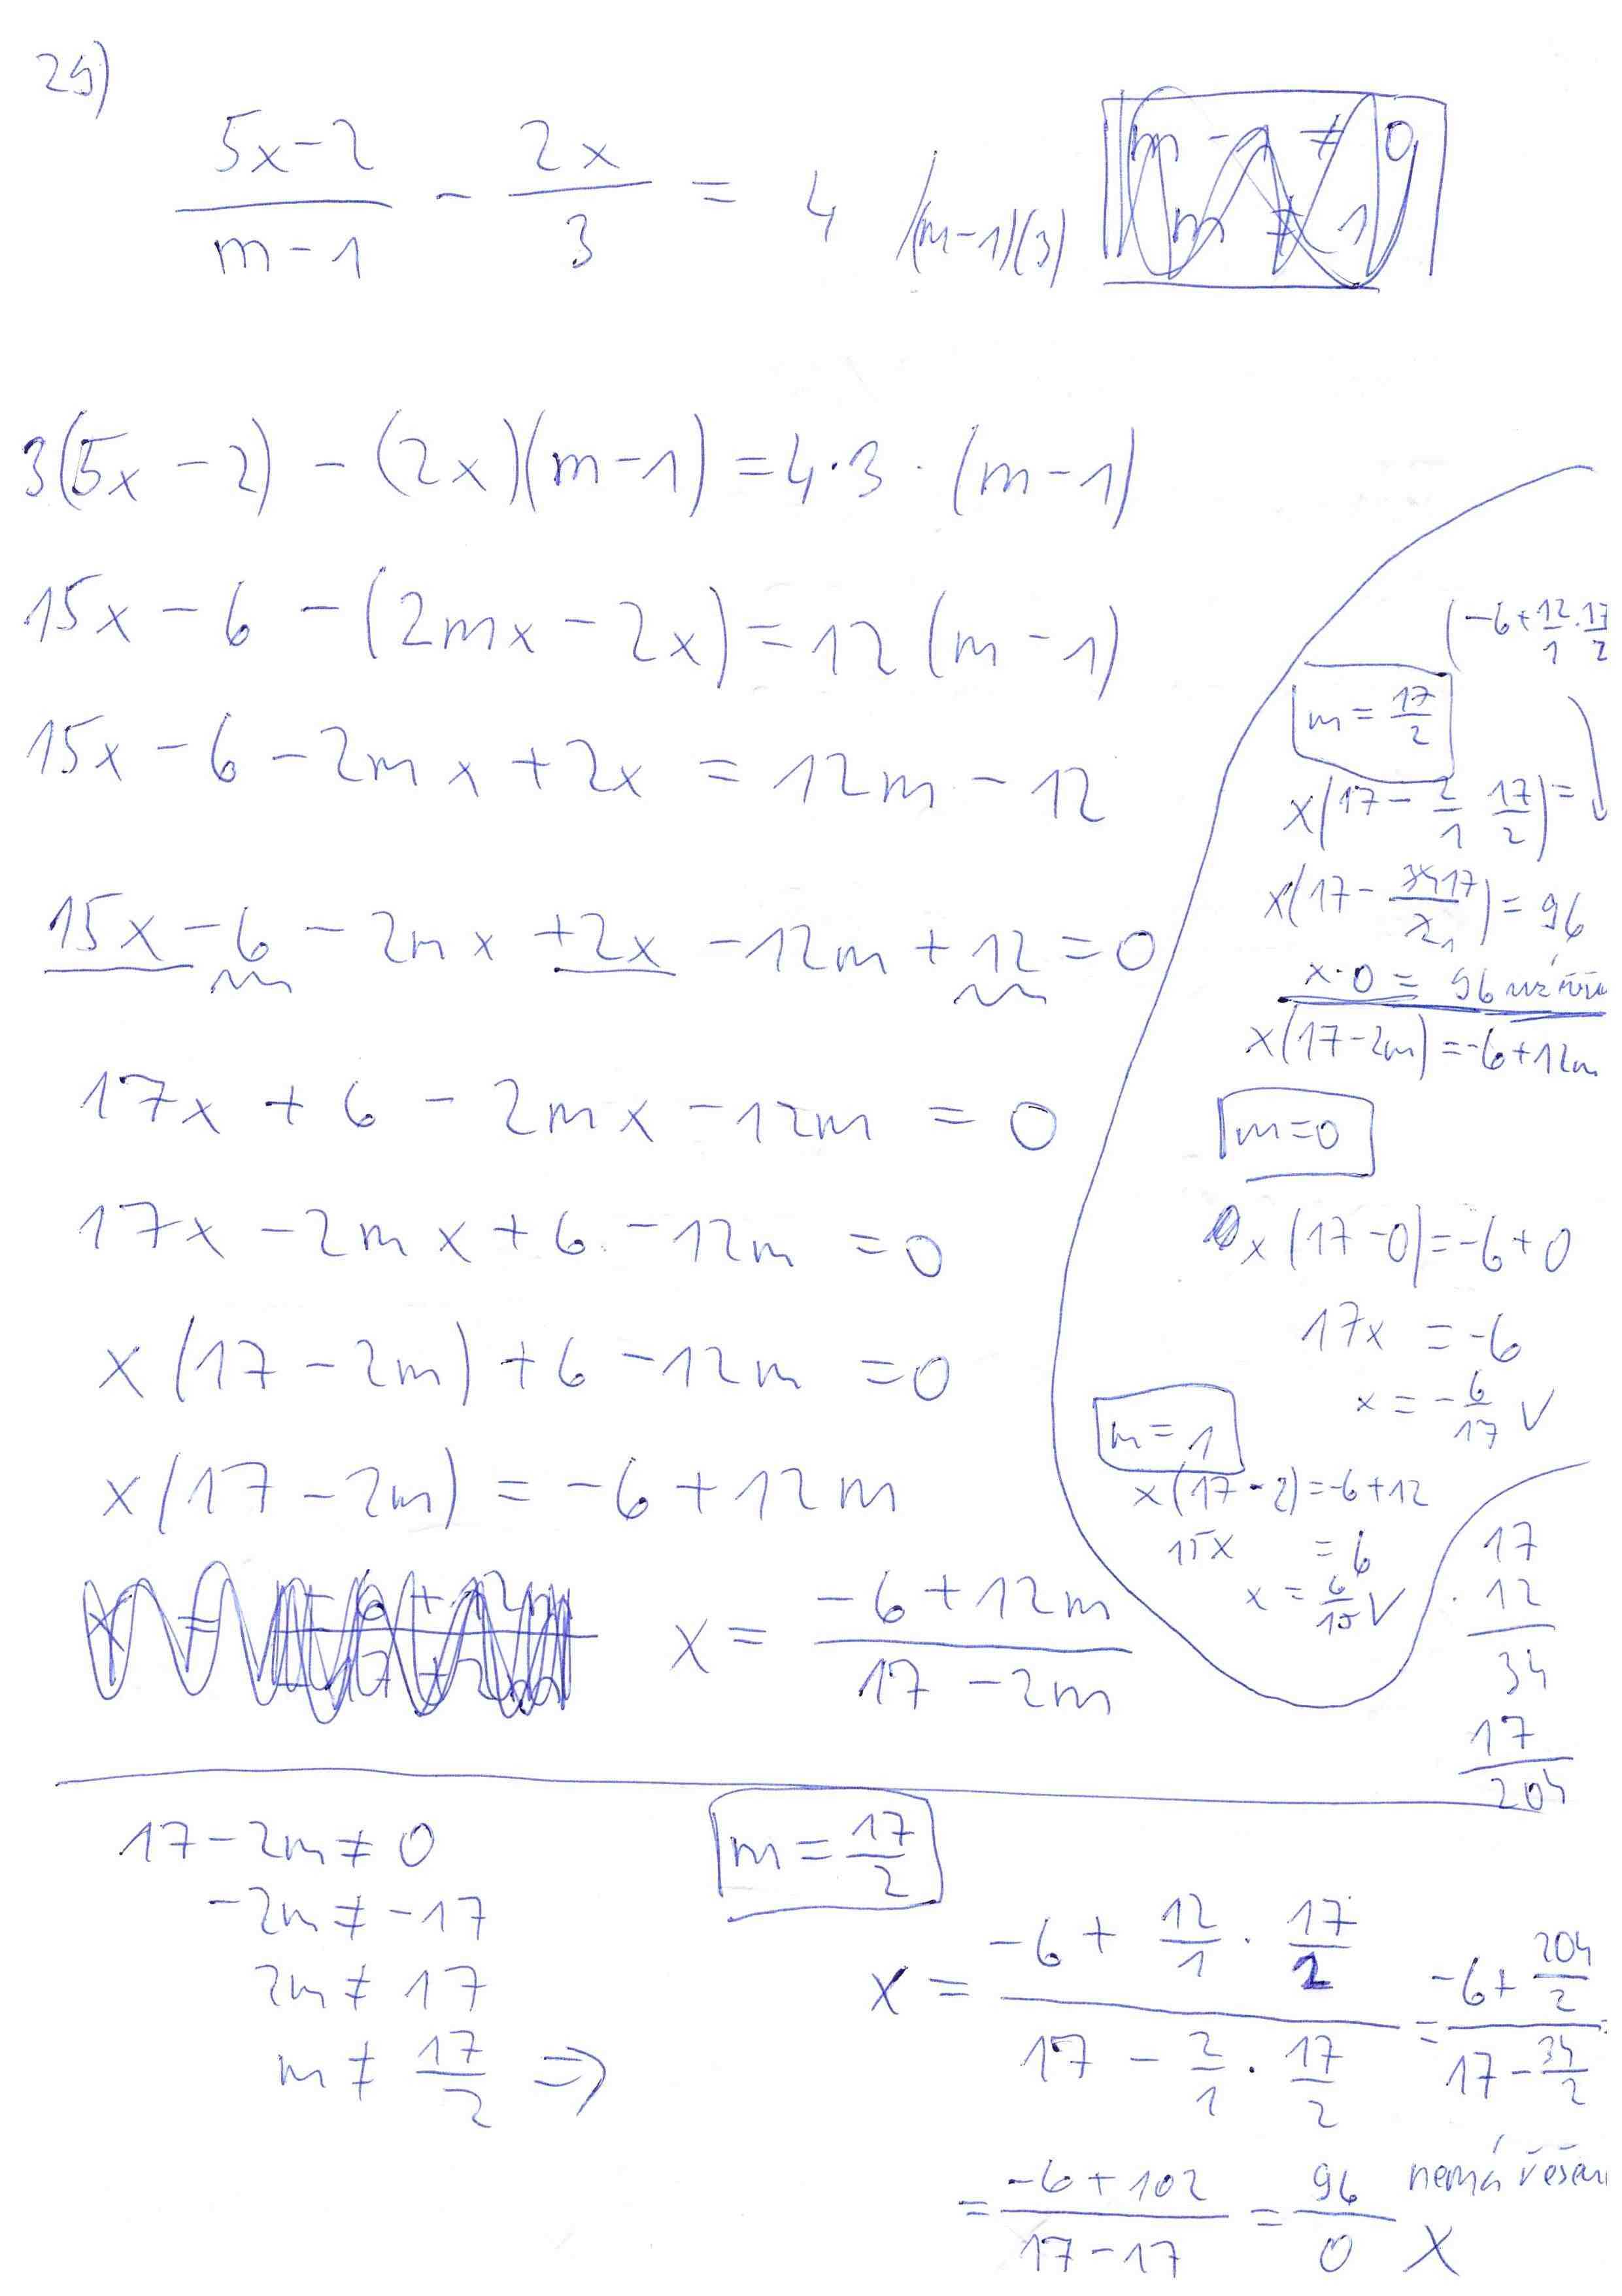 25)
5x-2 / m-1 - 2x / 3 = 4 /(m-1)(3)
m - 1 ≠ 0
m ≠ 1
3(5x - 2) - (2x)(m-1) = 4·3·(m-1)
15x - 6 - (2mx - 2x) = 12(m-1)
15x - 6 - 2mx + 2x = 12m - 12
15x - 6 - 2mx + 2x - 12m + 12 = 0
17x + 6 - 2mx - 12m = 0
17x - 2mx + 6 - 12m = 0
x(17 - 2m) + 6 - 12m = 0
x(17 - 2m) = -6 + 12m
x = -6 + 12m / 17 - 2m
(-6 + 12/1 · 17/2
m = 17/2
x(17 - 2/1 17/2) =
x(17 - 34 17 / 2 1) = 96
x·0 = 96
x(17-2m) = -6+12m
m=0
x(17-0) = -6+0
17x = -6
x = -6/17 V
m = 1
x(17-2) = -6+12
15x = 6
x = 6/15 V
17
· 12
34
17
204
17 - 2m ≠ 0
-2m ≠ -17
2m ≠ 17
m ≠ 17/2 =>
m = 17/2
x = -6 + 12/1 · 17/2 / 17 - 2/1 · 17/2 = -6 + 204/2 / 17 - 34/2
= -6 + 102 / 17 - 17 = 96 / 0 nemá řešen
X